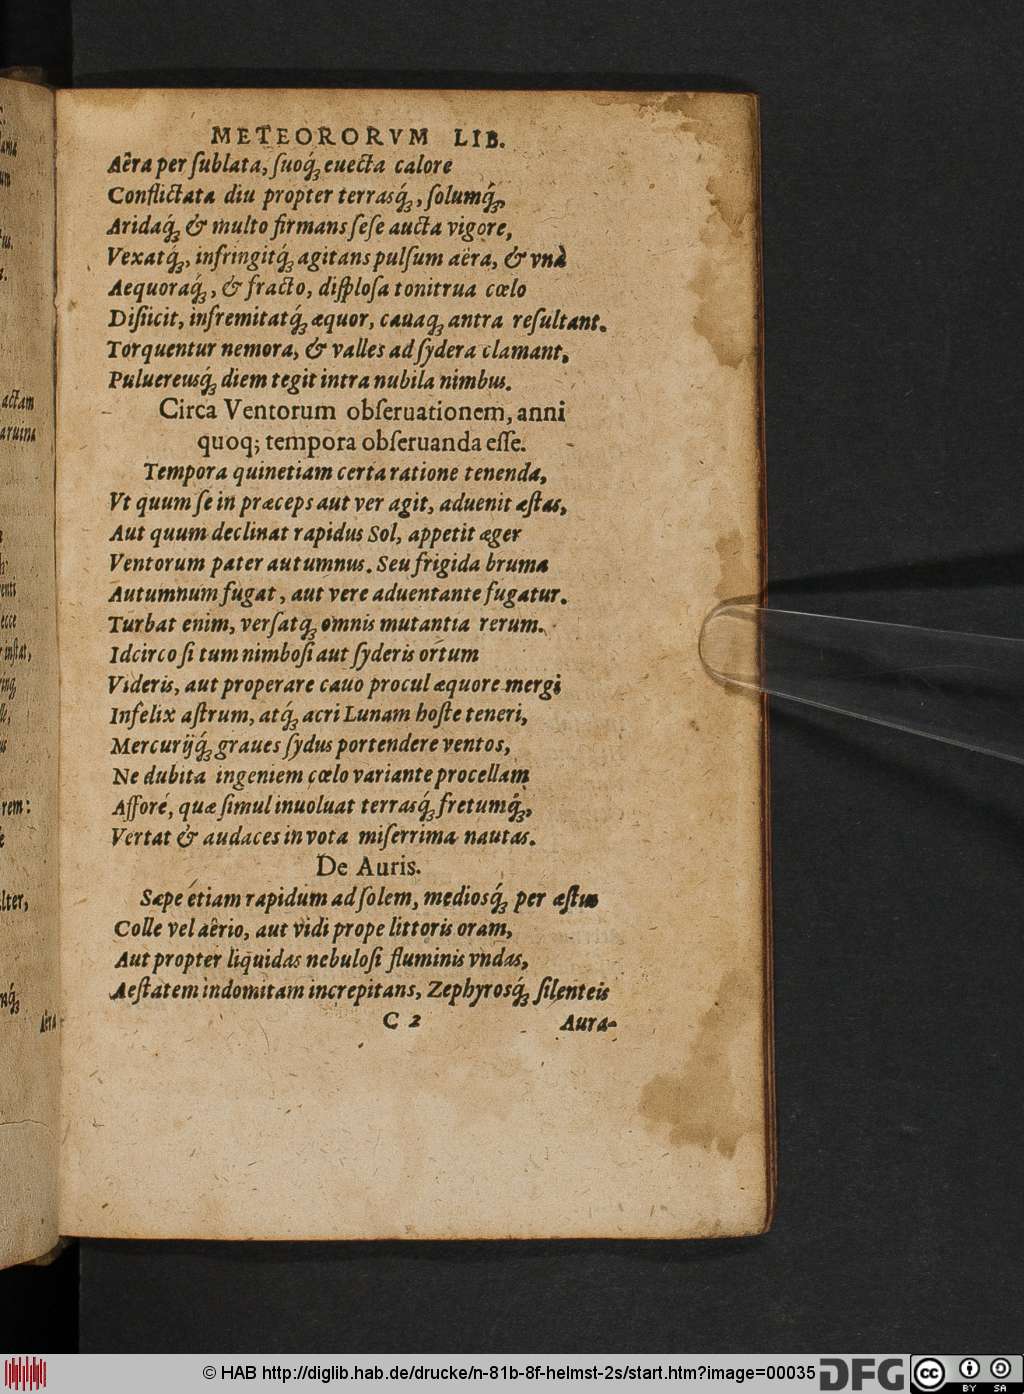 METEORORVM LIB.
Aêra per ſublata, ſuoq́ꝫ euecta calore
Conflictata diu propter terrasq́ꝫ, ſolumq́ꝫ,
Aridaq́ꝫ & multo firmans ſeſe aucta vigore,
Vexatq́ꝫ, infringitq́ꝫ agitans pulſum aëra, & vnà
Aequoraq́ꝫ, & fracto, diſploſa tonitrua cœlo
Diſiicit, infremitatq́ꝫ æquor, cauaqꝫ antra reſultant.
Torquentur nemora, & valles ad ſydera clamant,
Puluereusq́ꝫ diem tegit intra nubila nimbus.
Circa Ventorum obſeruationem, anni
quoq; tempora obſeruanda eſſe.
Tempora quinetiam certa ratione tenenda,
Vt quum ſe in præceps aut ver agit, aduenit æſtas,
Aut quum declinat rapidus Sol, appetit æger
Ventorum pater autumnus. Seu frigida bruma
Autumnum fugat, aut vere aduentante fugatur.
Turbat enim, verſatqꝫ omnis mutantia rerum.
Idcirco ſi tum nimboſi aut ſyderis ortum
Videris, aut properare cauo procul æquore mergi
Infelix aſtrum, atq́ꝫ acri Lunam hoſte teneri,
Mercurijq́ꝫ graues ſydus portendere ventos,
Ne dubita ingeniem cœlo variante procellam
Afforé, quæ ſimul inuoluat terrasq́ꝫ fretumq́ꝫ,
Vertat & audaces in vota miſerrima nautas.
De Auris.
Sæpe étiam rapidum ad ſolem, mediosq́ꝫ per æſtus
Colle vel aêrio, aut vidi prope littoris oram,
Aut propter liquidas nebuloſi fluminis vndas,
Aeſtatem indomitam increpitans, Zephyrosq́ꝫ ſilenteis
C 2 Aura-
© HAB http://diglib.hab.de/drucke/n-81b-8f-helmst-2s/start.htm?image=00035 DFG cc BY SA